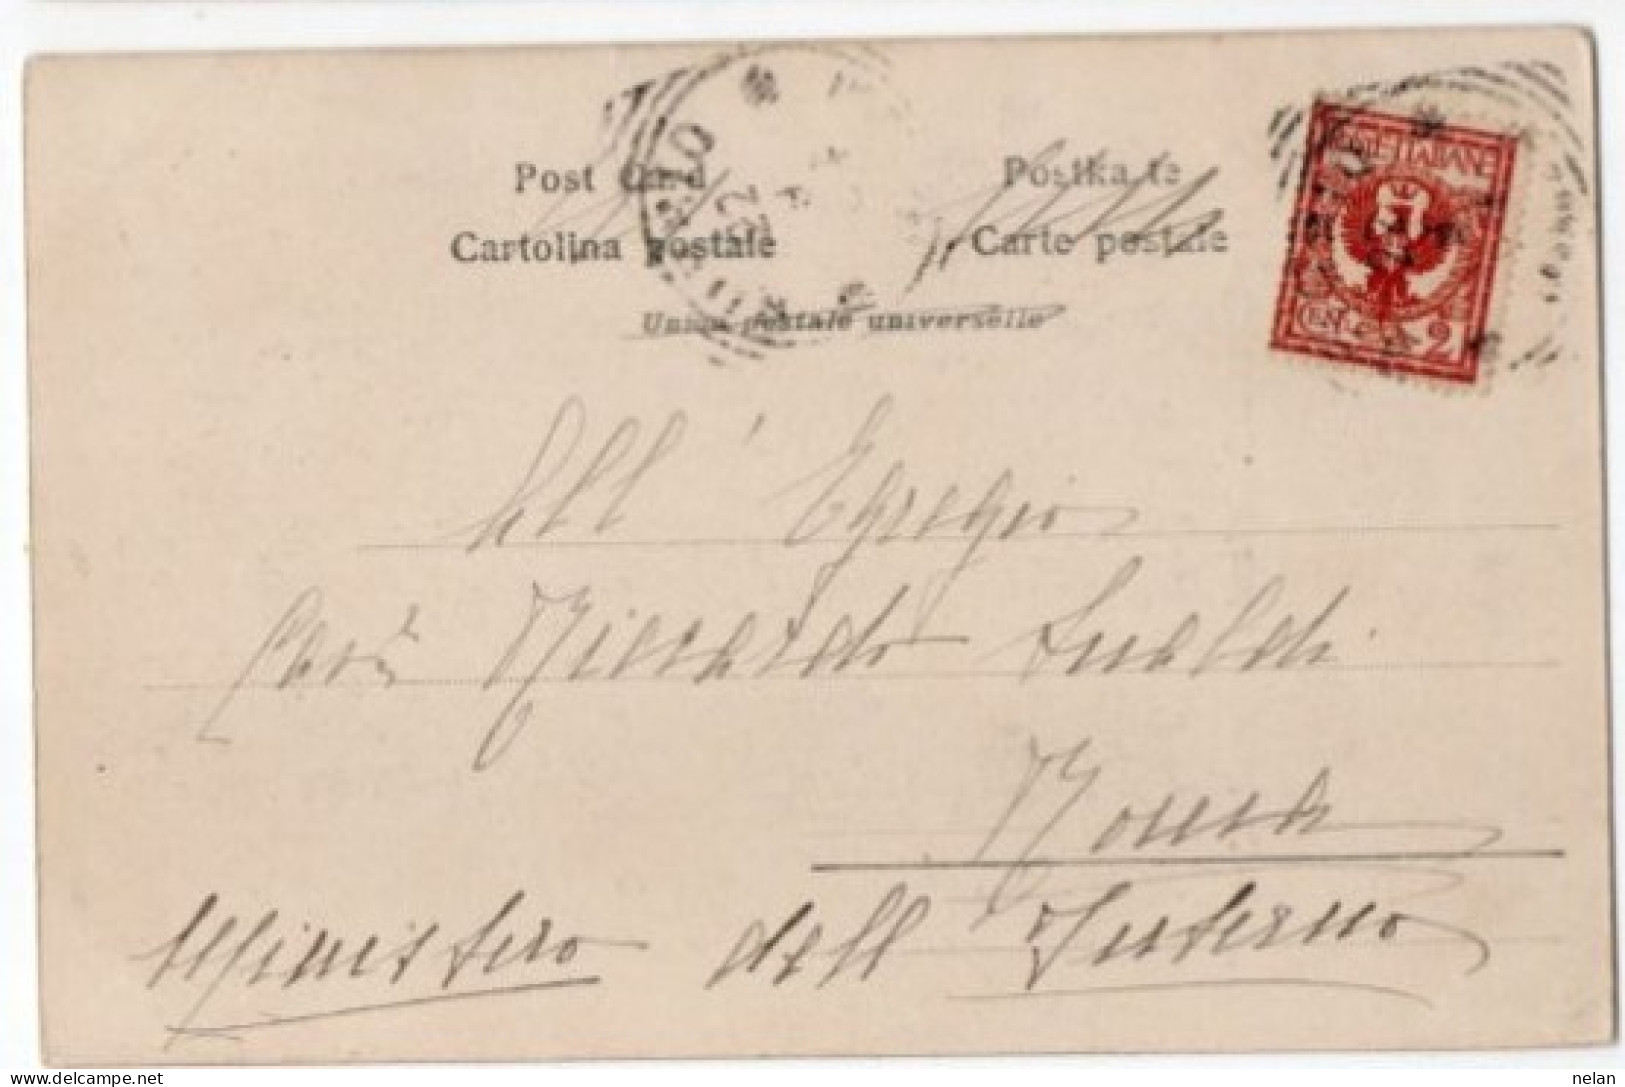 Post Card
Postkarte
Cartolina postale
Carte postale
Union postale universelle
POSTE ITALIANE
CENT. 2
All' Egregio
Riccardo Sualdi
Roma
Ministero dell Interno
delcampe.net
nelan